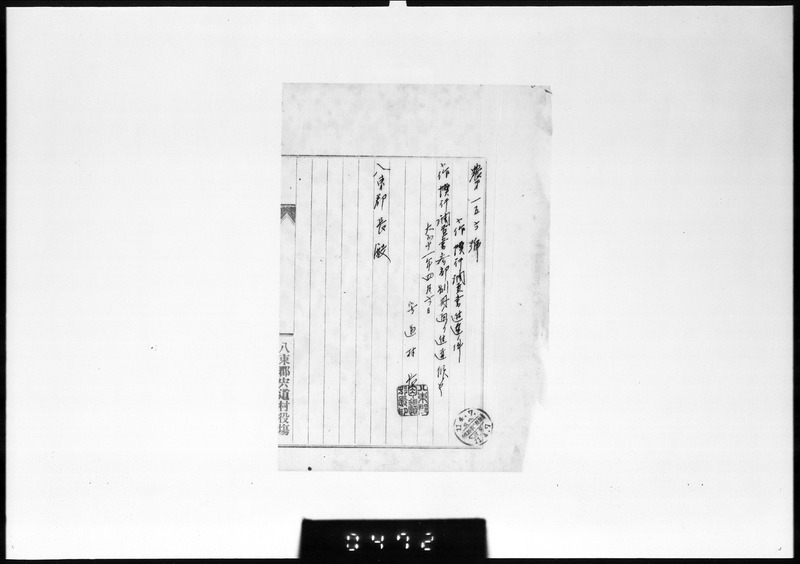 農第一五六号
小作慣行調査書進達ノ件
小作慣行調査書壱部別冊ノ通リ進達候也
大正十一年四月六日
宍道村長
八束郡長殿
八束郡宍道村役場
11.4.7
0472